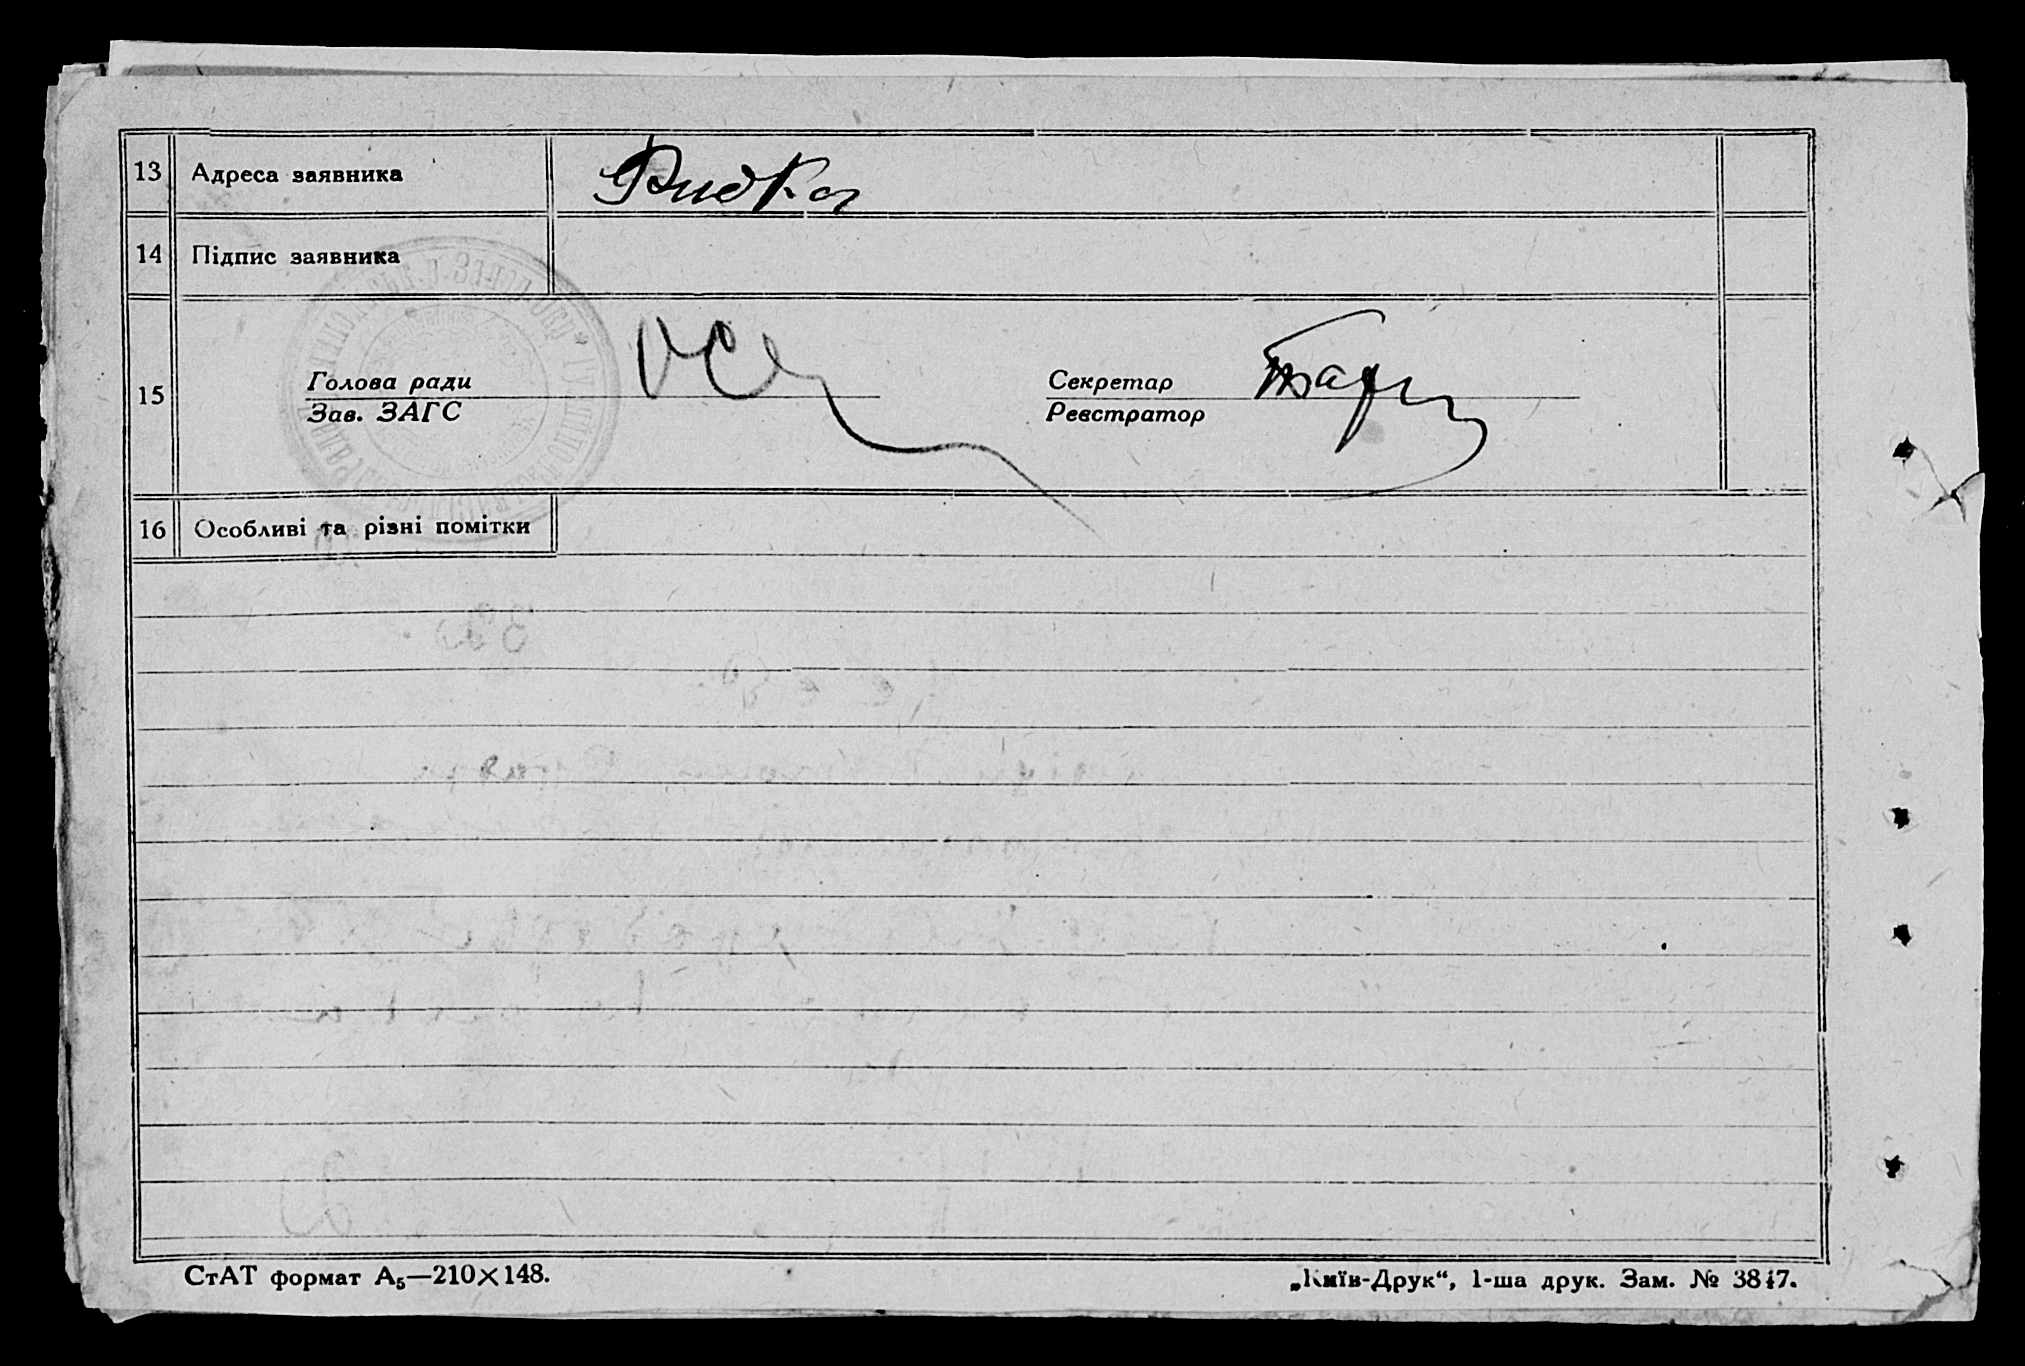 13 Адреса заявника
14 Підпис заявника
15 Голова ради Секретар
Зав. ЗАГС Реєстратор
16 Особливі та різні помітки
СтАТ формат А₅—210×148. „Київ-Друк“, 1-ша друк. Зам. № 3847.